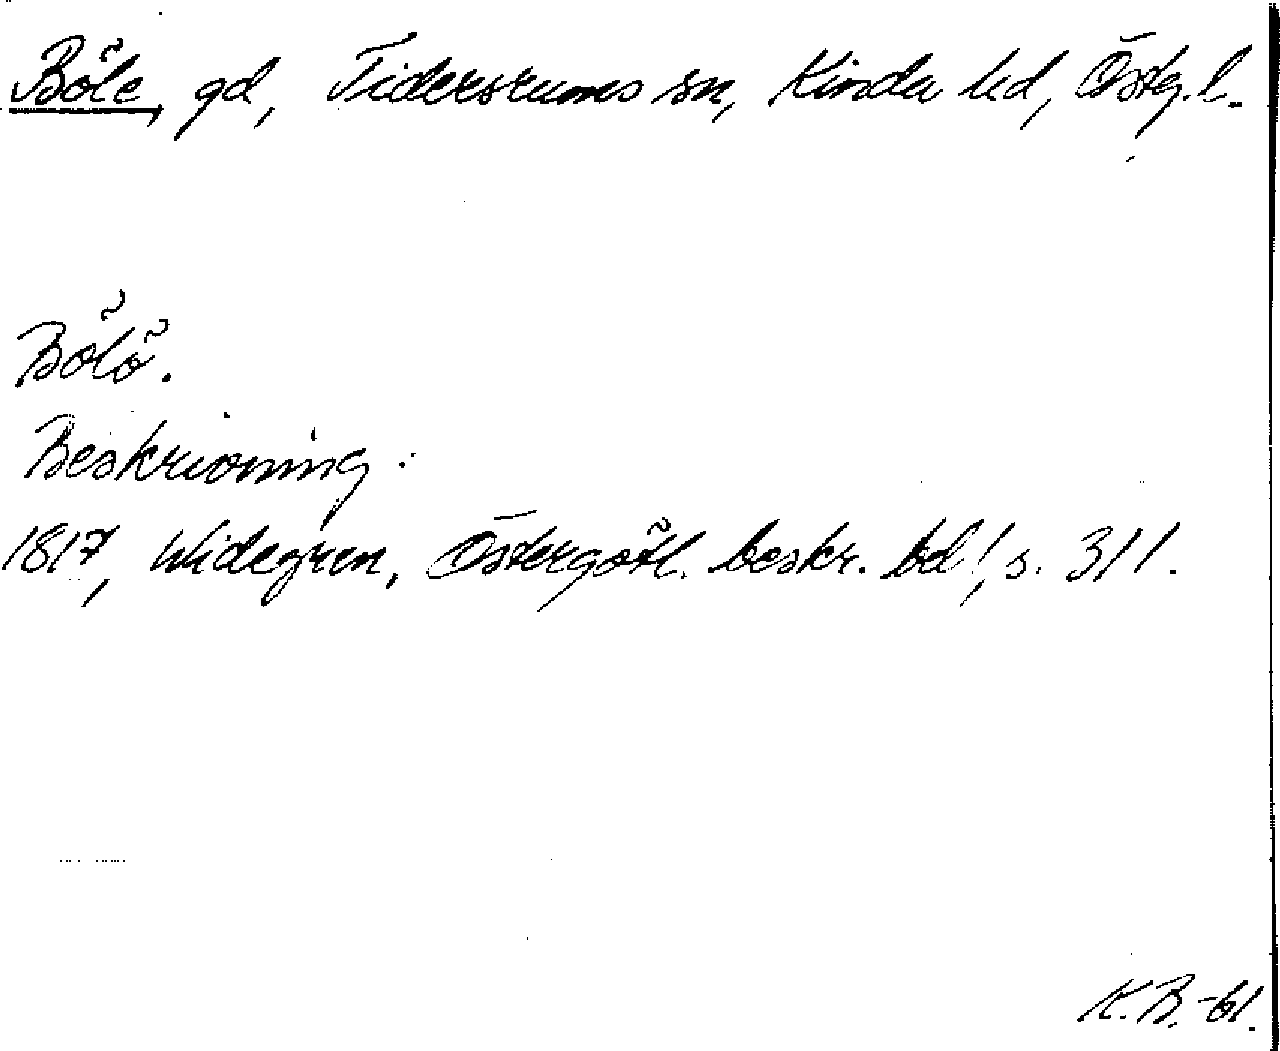 Böle, gd, Tidersrums sn, Kinda hd, Östg.l.
Bölö.
Beskrivning:
1817, Widegren, Östergötl. beskr. bd 1, s. 311.
K.B. -61.